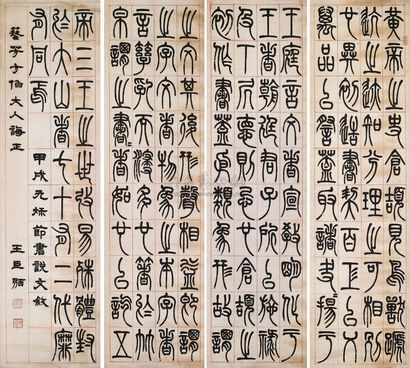 黄帝之史倉頡見鳥獸蹏
迒之迹知分理之可相別
異也初造書契百工以乂
萬品以詧蓋取諸夬揚于
王庭言文者宣教明化于
王者朝廷君子所以施祿
及下居德則忌也倉頡之
初作書蓋依類象形故謂
之文其後形聲相益即謂
之字文者物象之本字者
言孳乳而浸多也箸於竹
帛謂之書書者如也以訖五
帝三王之世改易殊體封
於大山者七十有二代靡
有同焉
甲戌 節書說文敘
大人誨正
王臣